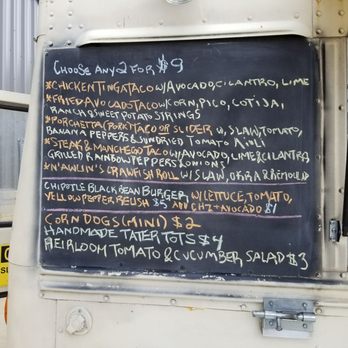 CHOOSE ANY 2 FOR $9
*CHICKEN TINGA TACO W/ AVOCADO, CILANTRO, LIME
*FRIED AVOCADO TACO W/ CORN, PICO, COTIJA,
RANCH & SWEET POTATO STRINGS
*PORCHETTA (PORK) TACO OR SLIDER W, SLAW, TOMATO,
BANANA PEPPERS & SUNDRIED TOMATO AIOLI
*STEAK & MANCHEGO TACO W/ AVOCADO, LIME & CILANTRO
GRILLED RAINBOW PEPPERS & ONIONS
*N'AWLIN'S CRAWFISH ROLL W/ SLAW, OKRA & REMOULAD
CHIPOTLE BLACK BEAN BURGER W/ LETTUCE, TOMATO,
YELLOW PEPPER RELISH $5 ADD AVOCADO $1
CORN DOGS (MINI) $2
HANDMADE TATER TOTS $4
HEIRLOOM TOMATO & CUCUMBER SALAD $3
SU